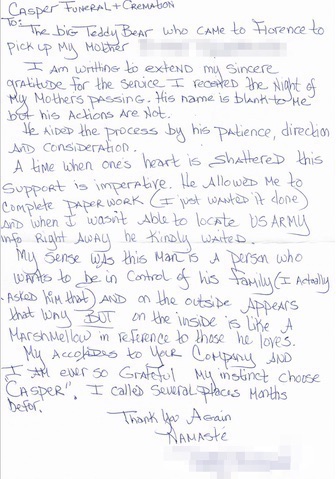 Casper Funeral + Cremation
To: The big Teddy Bear who came to Florence to
pick up My Mother
I am writting to extend my sincere
gratitude for the service I received the Night of
My Mothers passing. His name is blank to me
but his Actions are Not.
He Aided the process by his patience, direction
and consideration.
A time when one's heart is shattered this
Support is imperative. He Allowed Me to
complete paperwork (I just wanted it done)
and when I wasn't Able to locate US ARMY
info Right Away he kindly waited.
My Sense was this Man is A person who
wants to be in Control of his Family (I Actually
Asked him that) AND on the outside Appears
that way BUT on the inside is like A
Marshmellow in reference to those he loves.
My Accolides to Your Company AND
I AM ever so Grateful My instinct choose
"Casper". I called several places Months
befor.
Thank You Again
Namasté